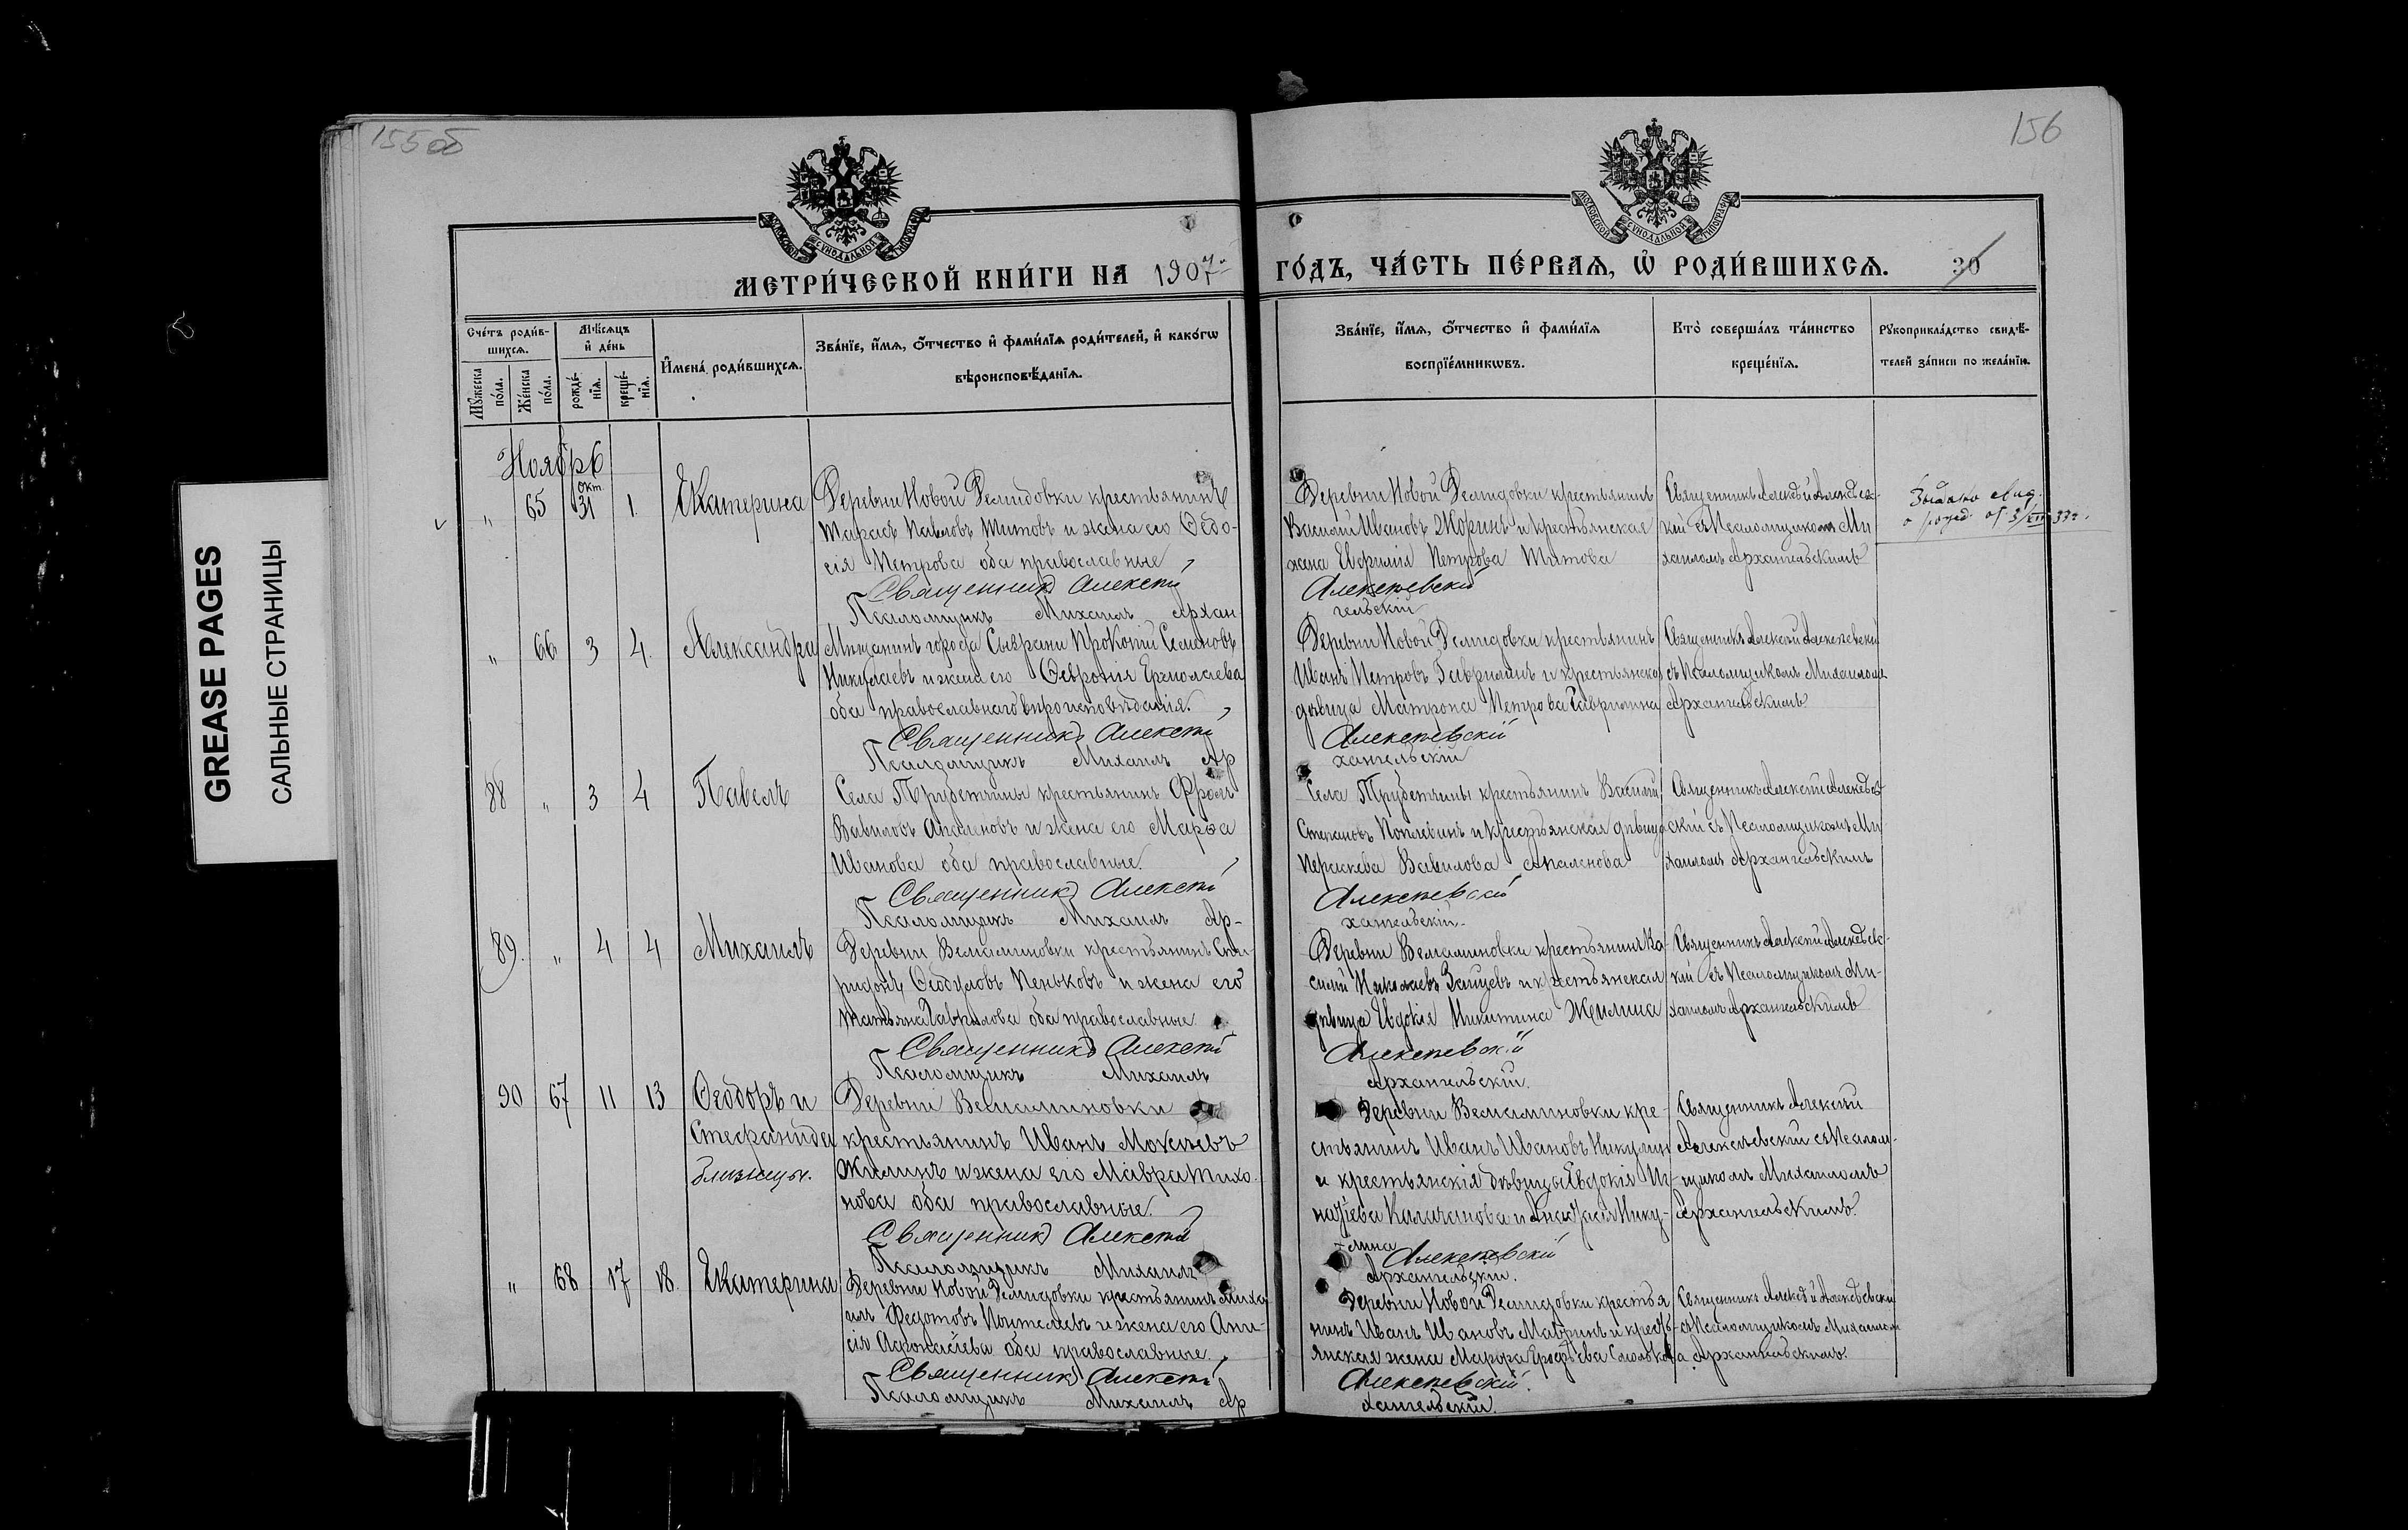 155об
156
МОСКОВСКОЙ СѴНОДАЛЬНОЙ ТИПОГРАФІИ
МОСКОВСКОЙ СѴНОДАЛЬНОЙ ТИПОГРАФІИ
МЕТРИ́ЧЕСКОЙ КНИ́ГИ НА 1907 ГО́ДЪ, ЧА́СТЬ ПЕ́РВАЯ, Ѡ РОДИ́ВШИХСЯ. 30
Сче́тъ роди́в-
шихся.
Му́жеска по́ла.
Же́нска по́ла.
Мѣ́сяцъ и де́нь
рожде́-
нїя.
креще́-
нїя.
Имена́ роди́вшихся.
Зва́нїе, и́мя, о́тчество и фами́лїя роди́телей, и како́гѡ
вѣроисповѣ́данїя.
Зва́нїе, и́мя, о́тчество и фами́лїя
воспрїе́мникѡвъ.
Кто̀ соверша́лъ та́инство
креще́нїя.
Рꙋкоприкла́дство свидѣ́-
телей за́писи по жела́нїю.
Ноябрь
„ 65 Окт. 31 1 Екатерина
Деревни Новой Демидовки крестьянинъ
Тарасъ Павловъ Титовъ и жена его Ѳедо-
сія Петрова оба православные
Священникъ Алексѣй
Псаломщикъ Михаилъ Архан
Деревни Новой Демидовки крестьянинъ
Василій Ивановъ Жоринъ и крестьянская
жена Евфимія Петрова Титова
Алексѣевскій
гельскій
Священникъ Алексѣй Алексѣевс-
кій съ Псаломщикомъ Ми
хаиломъ Архангельскимъ
Выдано свид.
о рожд. от 3/XII-33г.
„ 66 3 4 Александра
Мѣщанинъ города Сызрани Прокопій Семеновъ
Никулаевъ и жена его Ѳевронія Ермолаева
оба православнаго вѣроисповѣданія.
Священникъ Алексѣй
Псаломщикъ Михаилъ Ар
Деревни Новой Демидовки крестьянинъ
Иванъ Петровъ Гавриминъ и крестьянская
дѣвица Матрона Петрова Гавримина
Алексѣевскій
хангельскій
Священникъ Алексѣй Алексѣевскій
съ Псаломщикомъ Михаиломъ
Архангельскимъ
88 „ 3 4 Павелъ
Села Трубетчины крестьянинъ Фролъ
Вавиловъ Апаленовъ и жена его Марѳа
Иванова оба православные.
Священникъ Алексѣй
Псаломщикъ Михаилъ Ар-
Села Трубетчины крестьянинъ Василій
Степановъ и крестьянская дѣвица
Параскева Вавилова Апаленова
Алексѣевскій
хангельскій.
Священникъ Алексѣй Алексѣев
скій съ Псаломщикомъ Ми
хаиломъ Архангельскимъ
89. „ 4 4 Михаилъ
Деревни Вельяминовки крестьянинъ Спи-
ридонъ Ѳеодуловъ Пеньковъ и жена его
Татьяна Гаврилова оба православные
Священникъ Алексѣй
Псаломщикъ Михаилъ
Деревни Вельяминовки крестьянинъ Ва-
силій Николаевъ Зайцевъ и крестьянская
дѣвица Евдокія Никитина Жилина
Алексѣевскій
Архангельскій.
Священникъ Алексѣй Алексѣевс-
кій съ Псаломщикомъ Ми-
хаиломъ Архангельскимъ
90 67 11 13 Ѳеодоръ и
Стефанида
близнецы.
Деревни Вельяминовки
крестьянинъ Иванъ Мокѣевъ
Жилинъ и жена его Мавра Тихо-
нова оба православные.
Священникъ Алексѣй
Псаломщикъ Михаилъ
Деревни Вельяминовки кре-
стьянинъ Иванъ Ивановъ Никулин
и крестьянскія дѣвицы Евдокія Иг-
натіева Калачанова и Анастасія Нику-
лина
Алексѣевскій
Архангельскій.
Священникъ Алексѣй
Алексѣевскій съ Псалом-
щикомъ Михаиломъ
Архангельскимъ.
„ 68 17 18. Екатерина
Деревни Новой Демидовки крестьянинъ Миха
илъ Федотовъ Понтелѣевъ и жена его Ани-
сія Афонасіева оба православные.
Священникъ Алексѣй
Псаломщикъ Михаилъ Ар
Деревни Новой Демидовки крестья
нинъ Иванъ Ивановъ Мавринъ и кресть-
янская жена Марфа Ерофѣева Смолькова
Алексѣевскій.
хангельскій.
Священникъ Алексѣй Алексѣевскій
съ Псаломщикомъ Михаиломъ
Архангельскимъ.
GREASE PAGES
САЛЬНЫЕ СТРАНИЦЫ